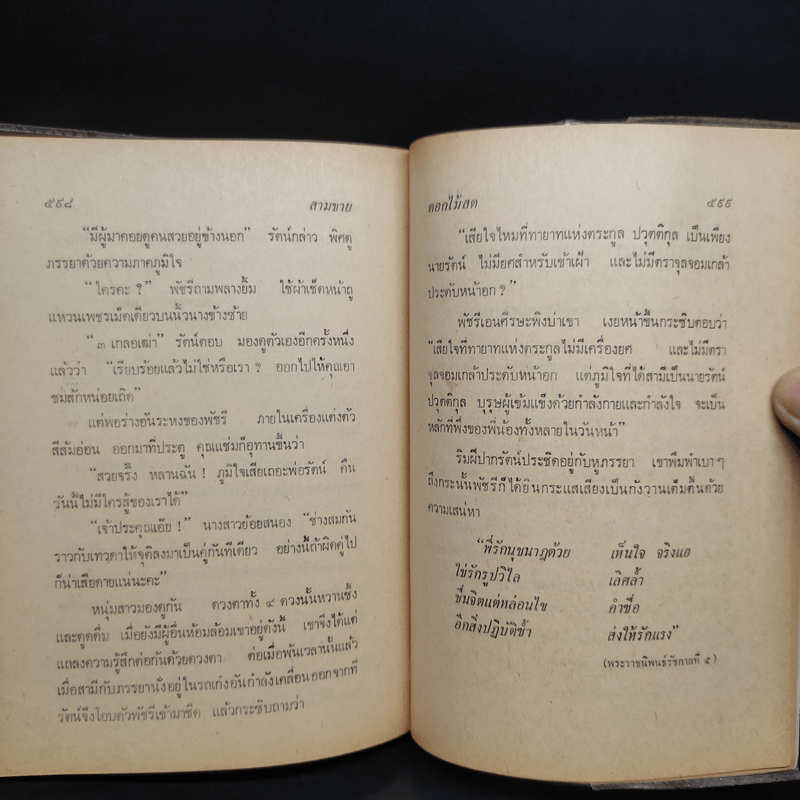 ๕๙๘ สามชาย
“มีผู้มาคอยดูคนสวยอยู่ข้างนอก” รัตน์กล่าว พิศดู
ภรรยาด้วยความภาคภูมิใจ
“ใครคะ ?” พัชรีถามพลางยิ้ม ใช้ผ้าเช็ดหน้าถู
แหวนเพชรเม็ดเดียวบนนิ้วนางข้างซ้าย
“๓ เกลอเฒ่า” รัตน์ตอบ มองดูตัวเองอีกครั้งหนึ่ง
แล้วว่า “เรียบร้อยแล้วไม่ใช่หรือเรา ? ออกไปให้คุณอา
ชมสักหน่อยเถิด”
แต่พอร่างอันระหงของพัชรี ภายในเครื่องแต่งตัว
สีส้มอ่อน ออกมาที่ประตู คุณแช่มก็อุทานขึ้นว่า
“สวยจริ๊ง หลานฉัน ! ภูมิใจเสียเถอะพ่อรัตน์ คืน
วันนี้ไม่มีใครสู้ของเราได้”
“เจ้าประคุณเอ๊ย !” นางสาวย้อยสนอง “ช่างสมกัน
ราวกับเทวดาให้จุติลงมาเป็นคู่กันทีเดียว อย่างนี้ถ้าผิดคู่ไป
ก็น่าเสียดายแน่นะคะ”
หนุ่มสาวมองดูกัน ดวงตาทั้ง ๔ ดวงนั้นหวานซึ้ง
และดูดดื่ม เมื่อยังมีผู้อื่นห้อมล้อมเขาอยู่ดังนี้ เขาจึงได้แต่
แถลงความรู้สึกต่อกันด้วยดวงตา ต่อเมื่อพ้นเวลานั้นแล้ว
เมื่อสามีกับภรรยานั่งอยู่ในรถเก๋งอันกำลังเคลื่อนออกจากที่
รัตน์จึงโอบตัวพัชรีเข้ามาชิด แล้วกระซิบถามว่า
ดอกไม้สด ๕๙๙
“เสียใจไหมที่ทายาทแห่งตระกูล ปวุตติกุล เป็นเพียง
นายรัตน์ ไม่มียศสำหรับเข้าเฝ้า และไม่มีตราจุลจอมเกล้า
ประดับหน้าอก ?”
พัชรีเอนศีรษะพิงบ่าเขา เงยหน้าขึ้นกระซิบตอบว่า
“เสียใจที่ทายาทแห่งตระกูลไม่มีเครื่องยศ และไม่มีตรา
จุลจอมเกล้าประดับหน้าอก แต่ภูมิใจที่ได้สามีเป็นนายรัตน์
ปวุตติกุล บุรุษผู้เข้มแข็งด้วยกำลังกายและกำลังใจ จะเป็น
หลักที่พึ่งของพี่น้องทั้งหลายในวันหน้า”
ริมฝีปากรัตน์ประชิดอยู่กับหูภรรยา เขาพึมพำเบา ๆ
ถึงกระนั้นพัชรีก็ได้ยินกระแสเสียงเป็นกังวานเต็มตื้นด้วย
ความเสน่หา
“พี่รักนุชนาฎด้วย เห็นใจ จริงแฮ
ใช่รักรูปวิไล เลิศล้ำ
ชื่นจิตแต่หล่อนไข คำซื่อ
อีกสิ่งปฏิบัติซ้ำ ส่งให้รักแรง”
(พระราชนิพนธ์รัชกาลที่ ๕)